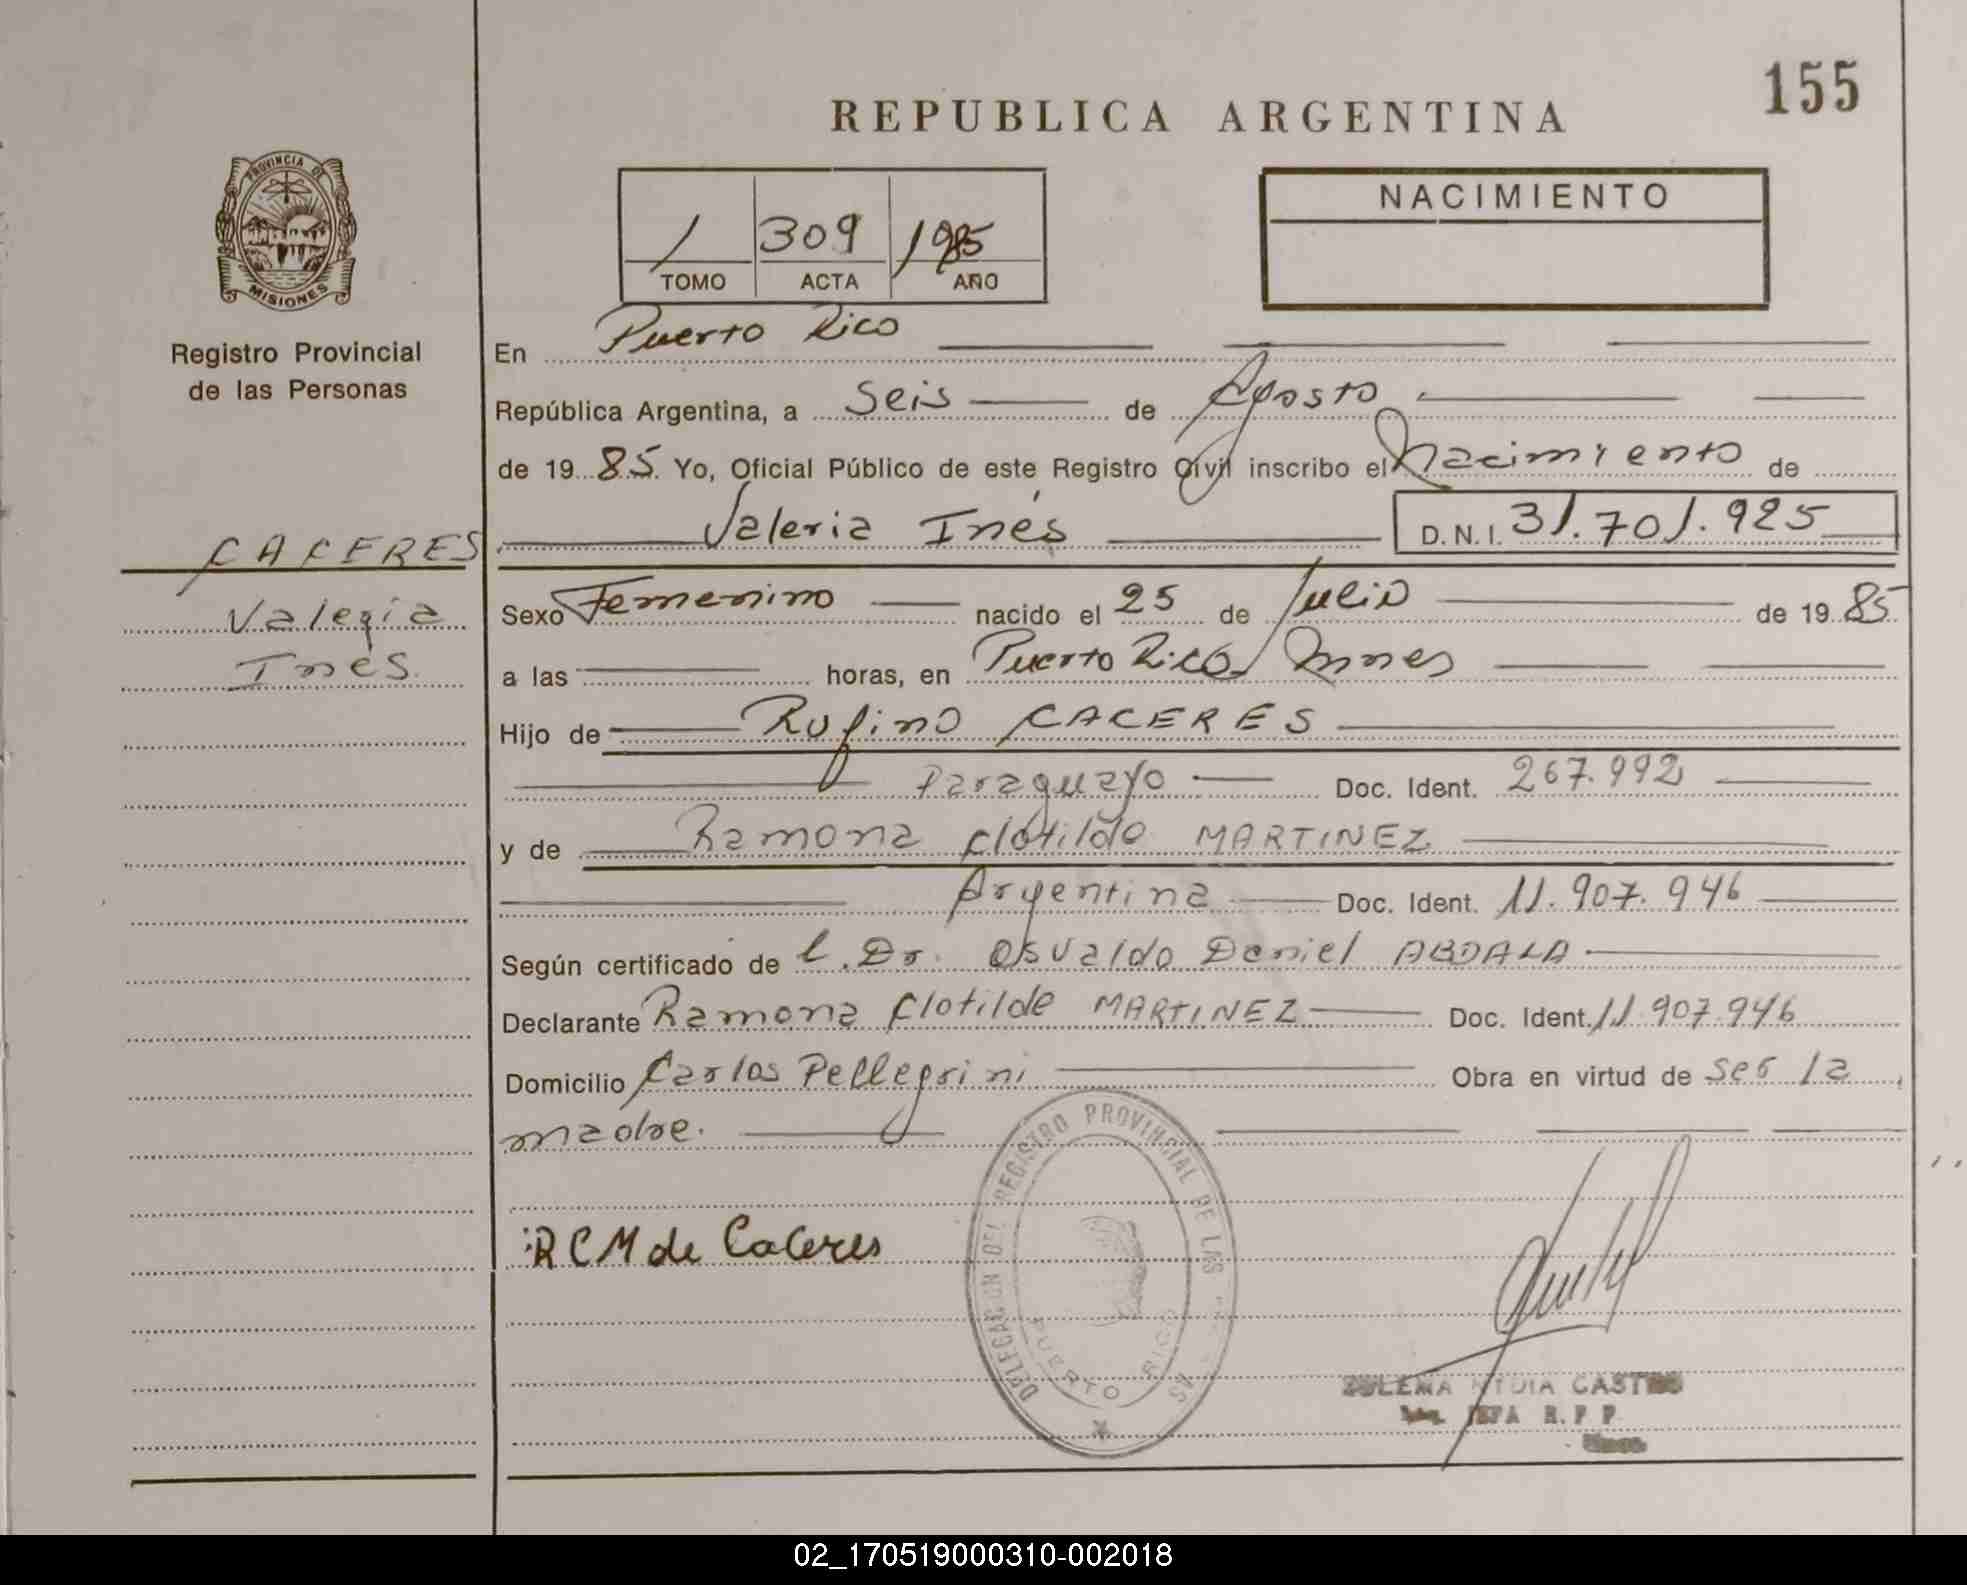 155
REPUBLICA ARGENTINA
PROVINCIA DE
MISIONES
Registro Provincial
de las Personas
1 309 1985
TOMO ACTA AÑO
NACIMIENTO
En Puerto Rico
República Argentina, a Seis de Agosto
de 19 85. Yo, Oficial Público de este Registro Civil inscribo el Nacimiento de
Valeria Inés D.N.I. 31.701.925
CACERES
Valeria
Inés.
Sexo Femenino nacido el 25 de Julio de 19 85
a las horas, en Puerto Rico, Mnes
Hijo de Rufino CACERES
Paraguayo Doc. Ident. 267.992
y de Ramona Clotilde MARTINEZ
Argentina Doc. Ident. 11.907.946
Según certificado de l. Dr. Osvaldo Daniel ABDALA
Declarante Ramona Clotilde MARTINEZ Doc. Ident. 11.907.946
Domicilio Carlos Pellegrini Obra en virtud de ser la
madre.
RCM de Caceres
DELEGACION DEL REGISTRO PROVINCIAL DE LAS
PUERTO RICO
ZULEMA CASTRO
JEFA R.P.P.
02_170519000310-002018